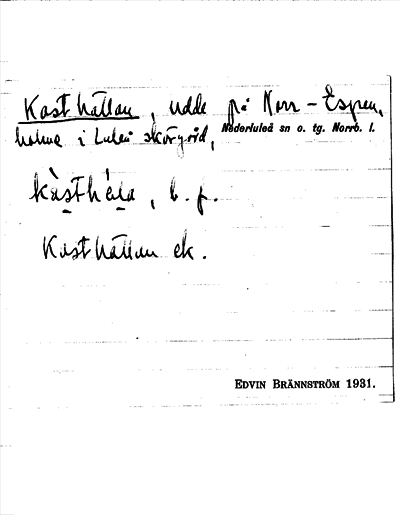 Kasthällan, udde på Norr-Espen,
holme i Luleå skärgård, Nederluleå sn o. tg. Norrb. l.
kàsthála, b. f.
Kasthällan ek.
EDVIN BRÄNNSTRÖM 1931.